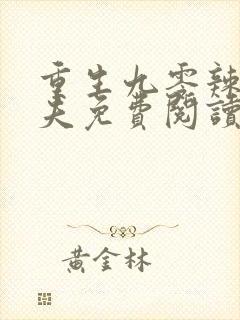 重生九零辣
夫免費閱讀
黃金林